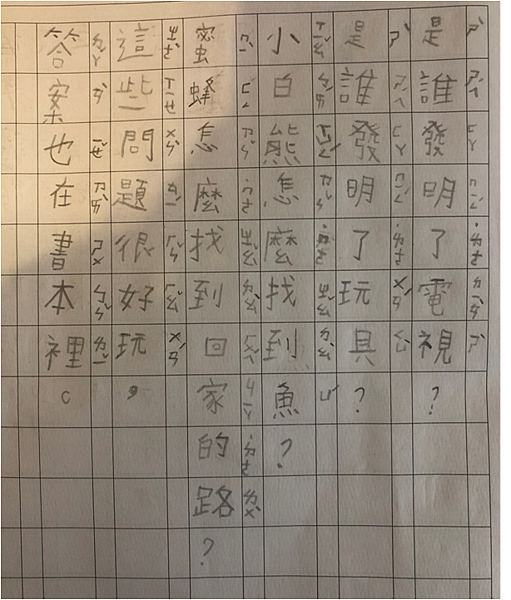 是誰發明了電視？
是誰發明了玩具？
小白熊怎麼找到魚？
蜜蜂怎麼找到回家的路？
這些問題很好玩，
答案也在書本裡。